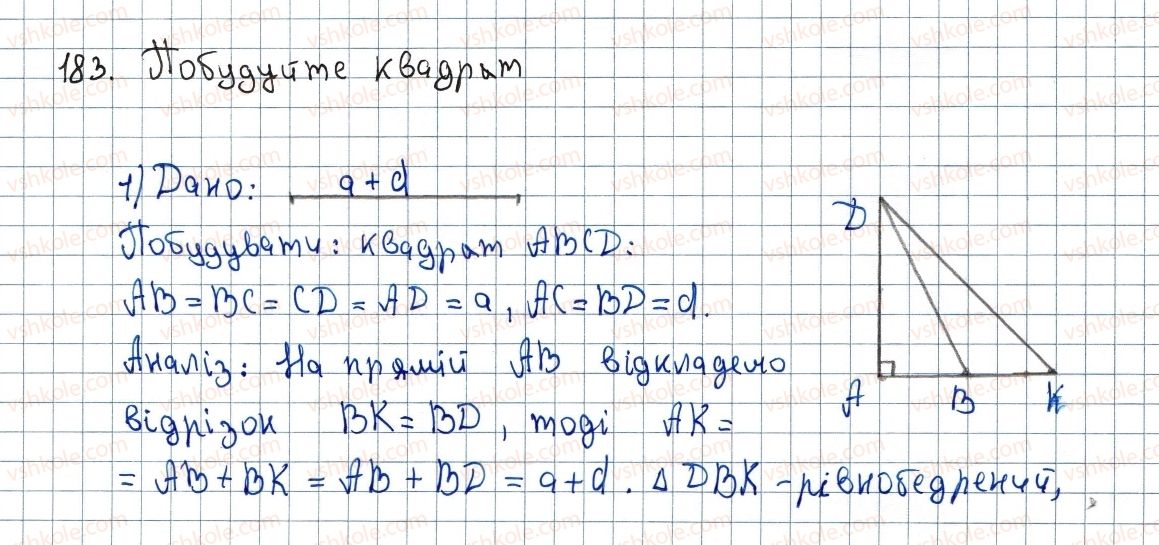 183. Побудуйте квадрат
1) Дано: a + d
Побудувати: квадрат ABCD:
AB = BC = CD = AD = a, AC = BD = d.
Аналіз: На прямій AB відкладемо
відрізок BK = BD, тоді AK =
= AB + BK = AB + BD = a + d. Δ DBK - рівнобедрений,
D
A B K